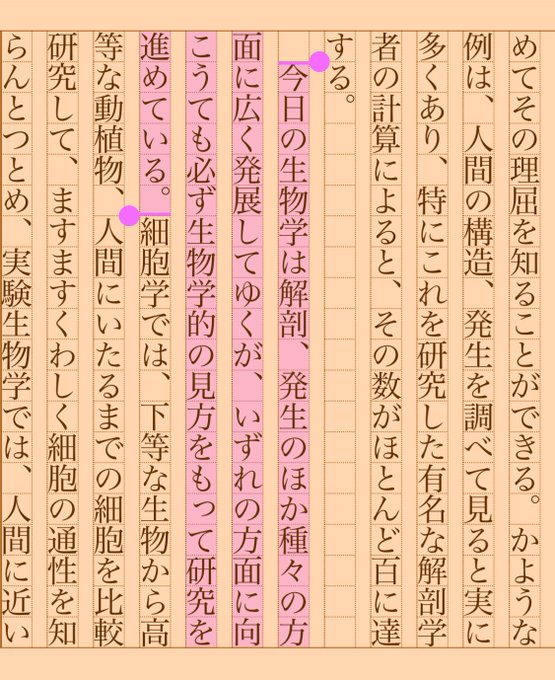 めてその理屈を知ることができる。かような
例は、人間の構造、発生を調べて見ると実に
多くあり、特にこれを研究した有名な解剖学
者の計算によると、その数がほとんど百に達
する。
今日の生物学は解剖、発生のほか種々の方
面に広く発展してゆくが、いずれの方面に向
こうても必ず生物学的の見方をもって研究を
進めている。細胞学では、下等な生物から高
等な動植物、人間にいたるまでの細胞を比較
研究して、ますますくわしく細胞の通性を知
らんとつとめ、実験生物学では、人間に近い